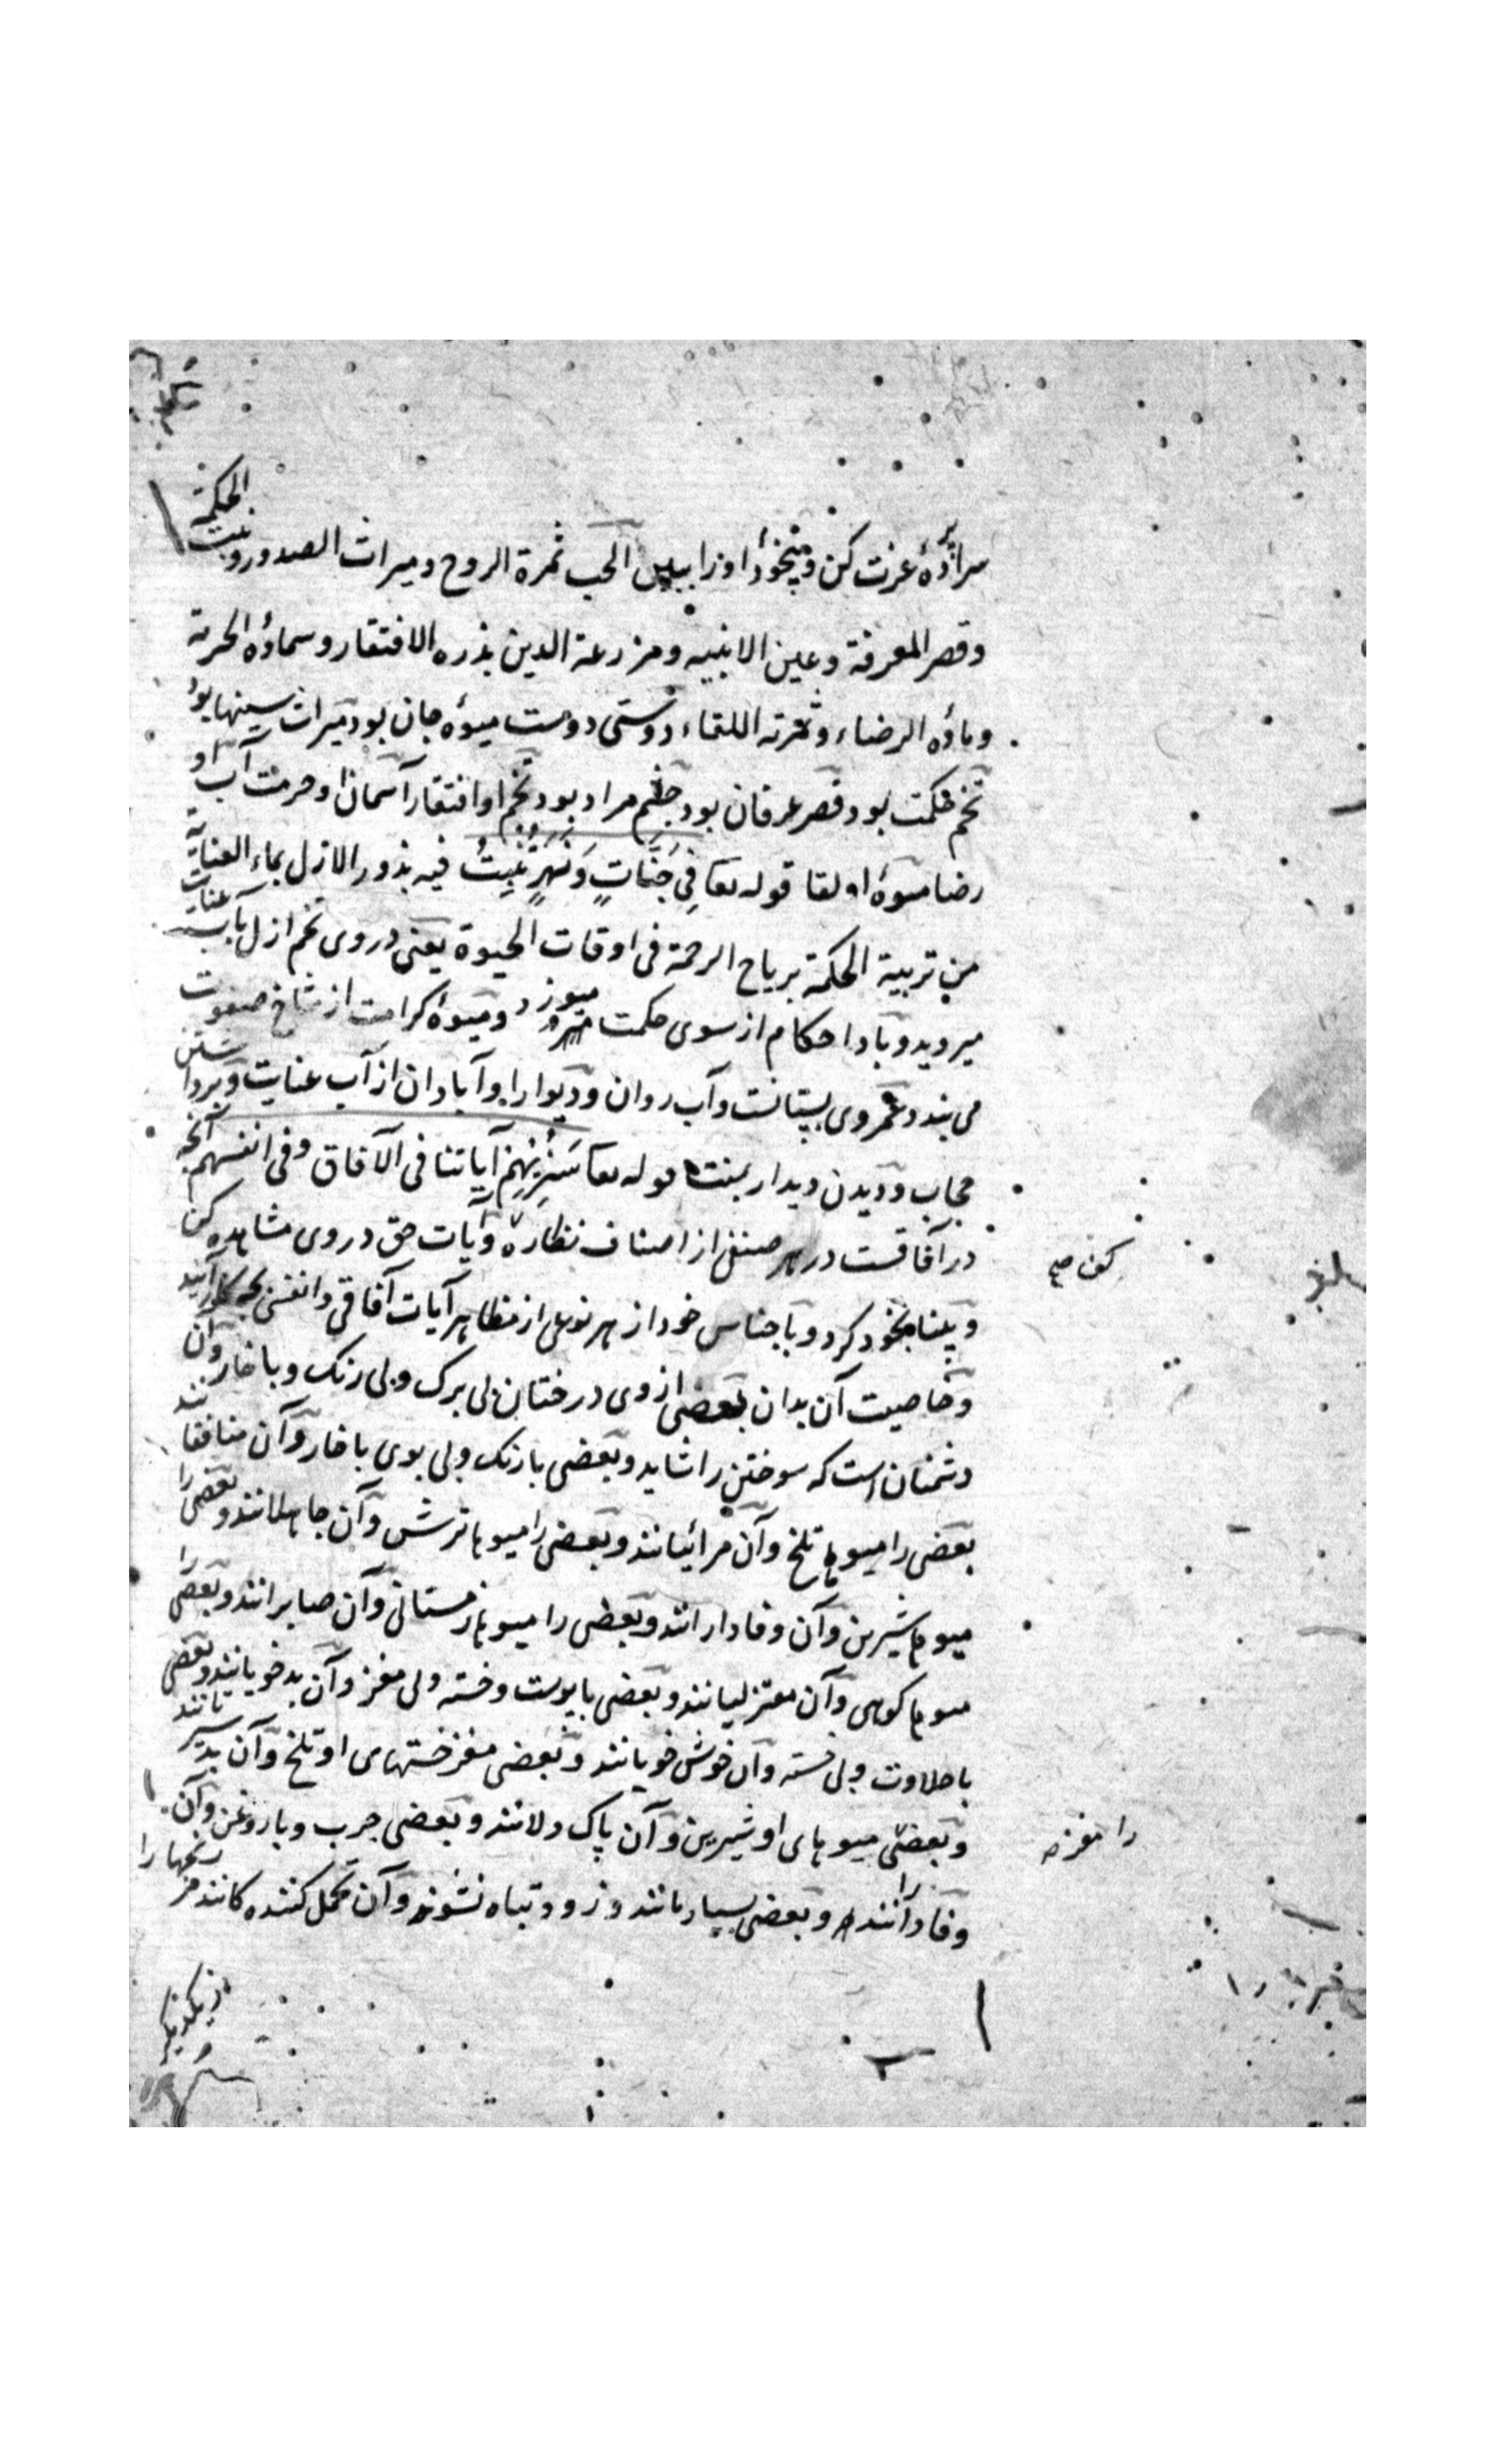 سراپردهٔ عزت کن و بیخود او را ببین الحب ثمرة الروح و میراث الصدور و نبت الحکمة
وقصر المعرفة وعین الانبیه ومزرعة الدین بذره الافتقار وسماؤه الحرمة
وماؤه الرضاء وثمرته اللقاء دوستی دوست میوهٔ جان بود میراث سینها بود
تخم حکمت بود وقصر عرفان بود چشم مراد بود تخم او افتقار آسمان او حرمت آب او
رضا میوهٔ او لقا قوله تعا فِی جَنَّاتٍ وَنَهَرٍ تُنبِتُ فیه بذور الازل بماء العنایة
من تربیة الحکمة بریاح الرحمة فی اوقات الحیوة یعنی در وی تخم ازل بآب عنایت
میروید و باد احکام از سوی حکمت میوزد و میوهٔ کرامت از شاخ صفوت
می بندد وی بستانست وآب روان ودیوارا وآبادان از آب عنایت وبرداشتن
حجاب ودیدن دیدار قوله تعا سَنُرِیهِم آیاتنا فی الآفاق وفی انفسهم آنچه
در آفاقست در هر صنفی از اصناف نظاره وآیات حق در وی مشاهده کن
کن صح
وبینا بخود کرد وباجناس خود از هر نوعی از مظاهر آیات آفاقی وانفسی
وخاصیت آن بدان بعضی ازوی درختان بی برک وبی رنک وبا خار وآن
دشمنان است که سوختن را شاید وبعضی بارنک وبی بوی باخار وآن منافقانند
بعضی را میوها تلخ وآن مرائیانند وبعضی را میوها ترش وآن جاهلانند وبعضی را
میوها شیرین وآن وفادارانند وبعضی را میوها زمستانی وآن صابرانند وبعضی را
میوها کوهی وآن معتزلیانند وبعضی با پوست وخسته وبی مغز وآن بدخویانند وبعضی
باحلاوت وبی خسته وآن خوش خویانند وبعضی مغز خستهای او تلخ وآن بدسیرتانند
وبعضی میوهای او شیرین وآن پاک دلانند وبعضی چرب وباروغن وآن
را مغز صح
وبعضی را بسیار مانند وزود تباه نشوند وآن تحمل کننده کانند مر رنجها را
از یکدیگر